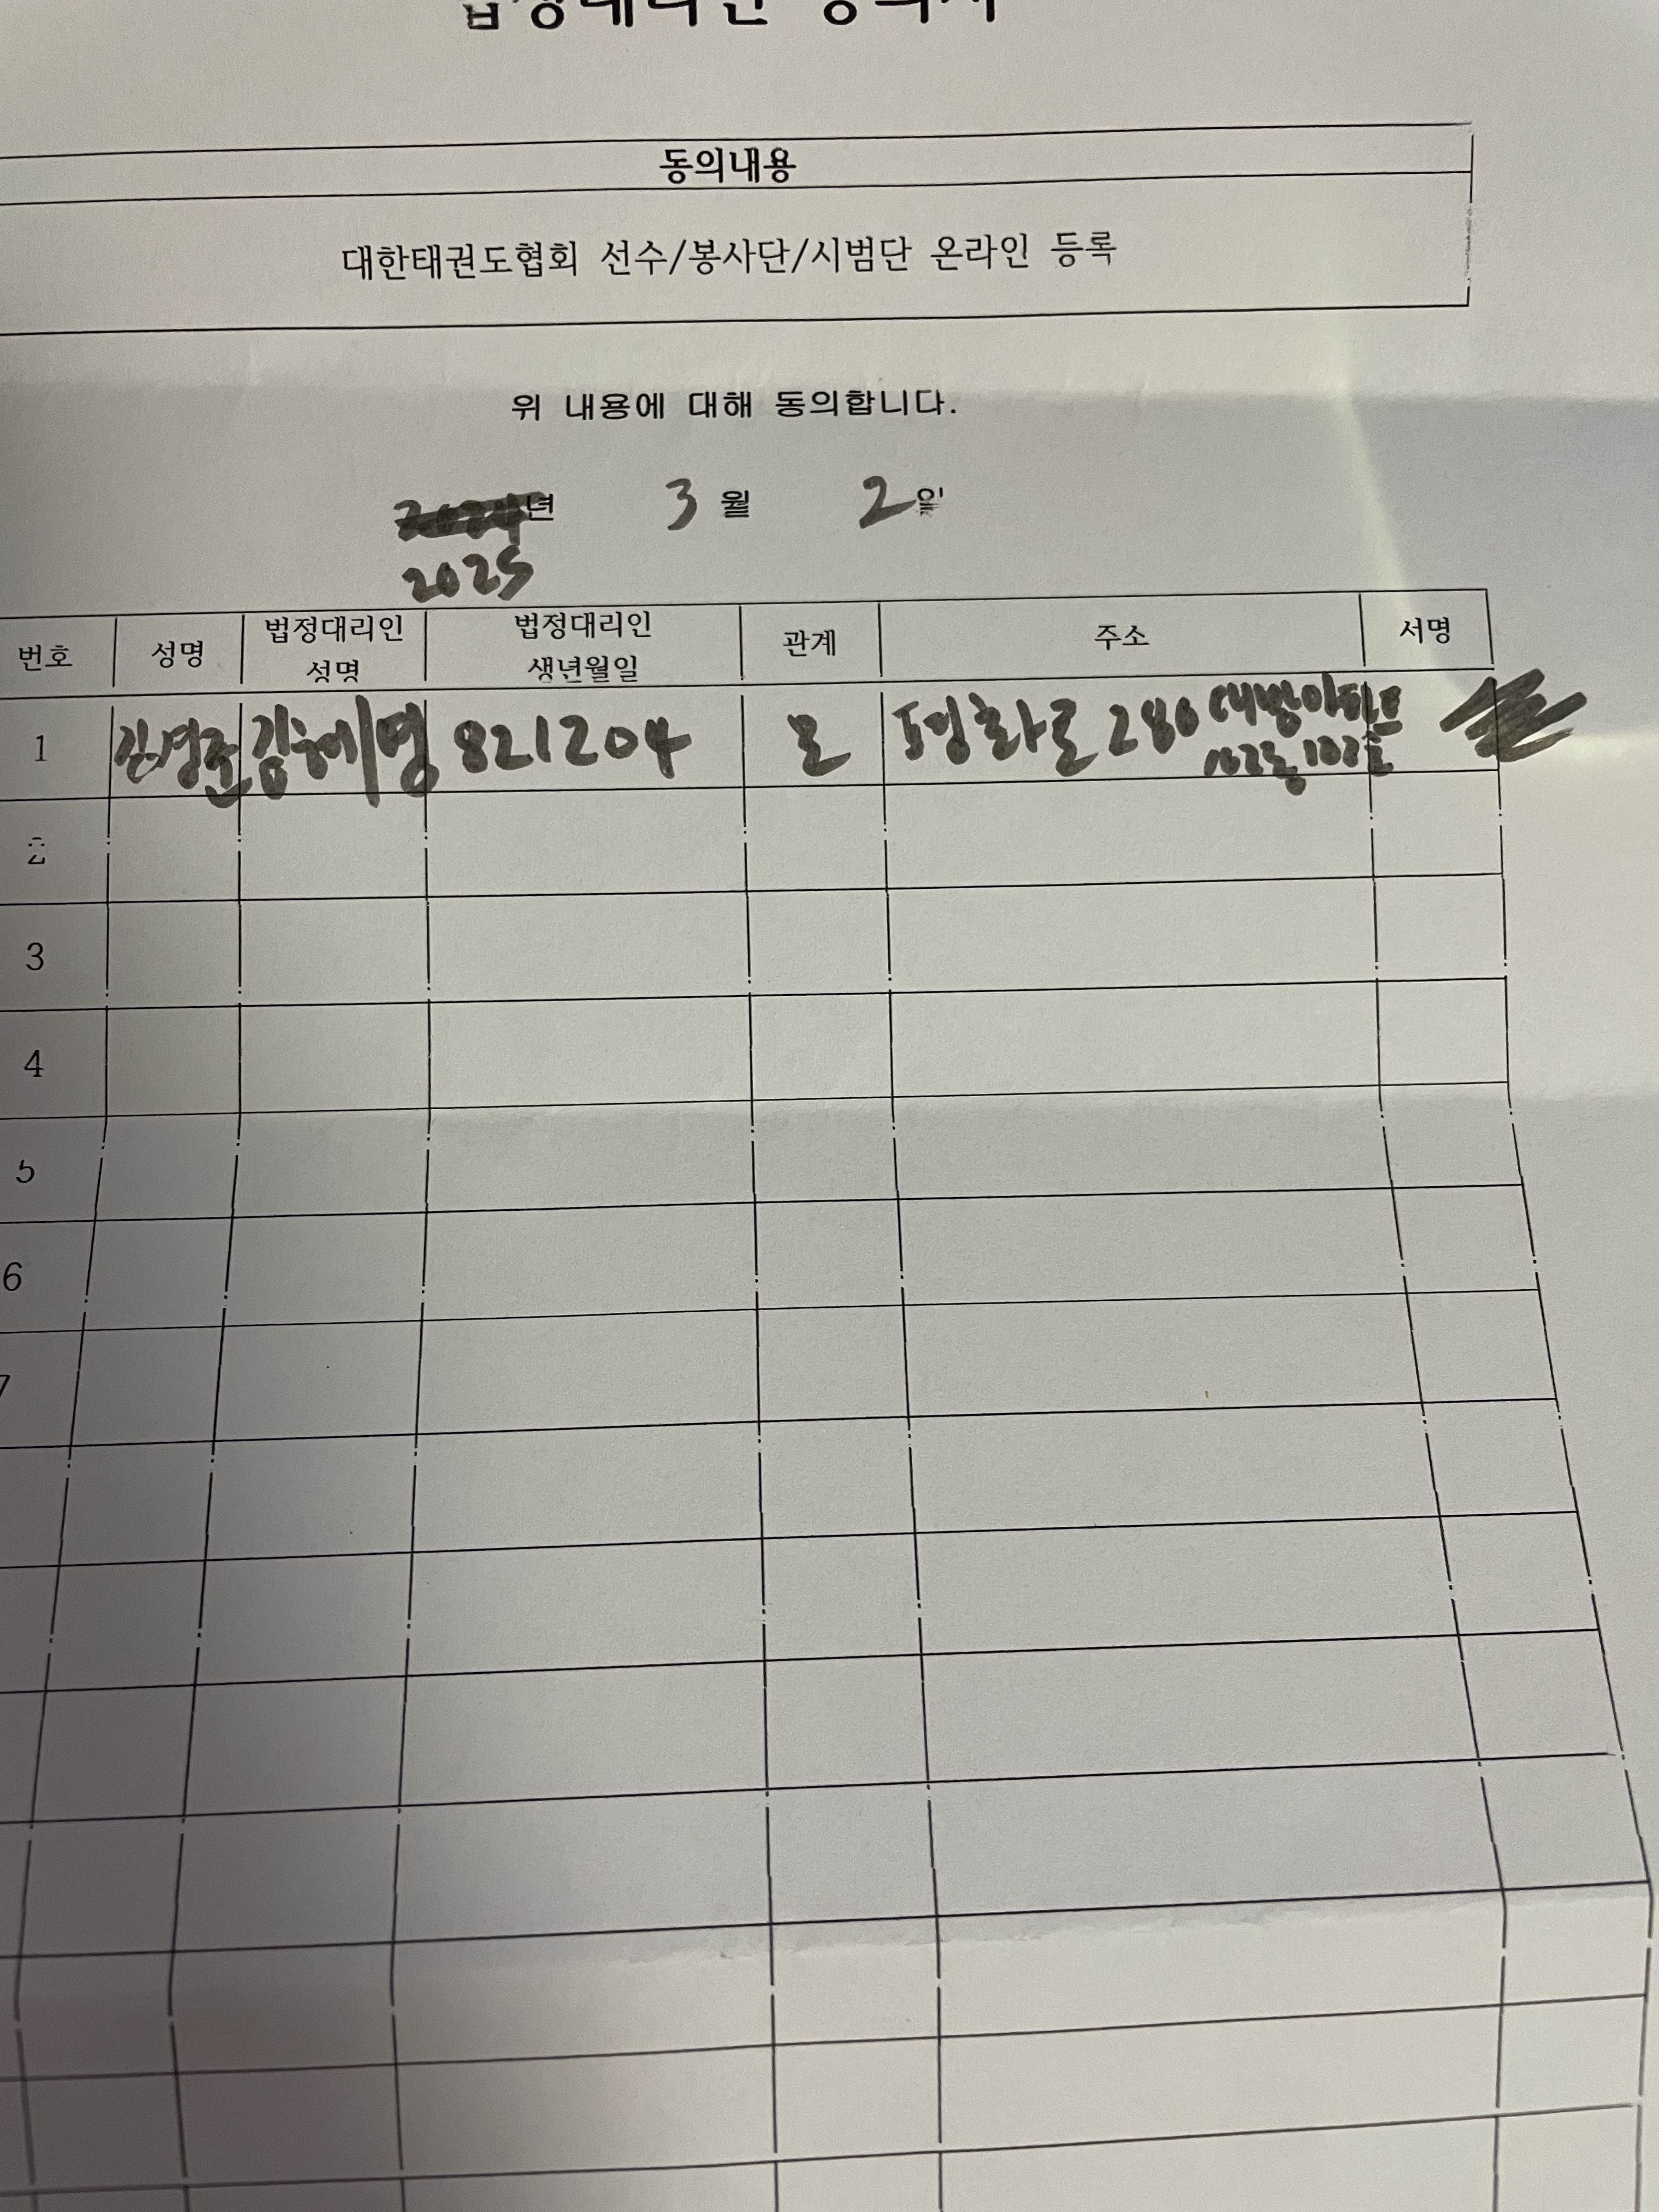 법정대리인 동의서
동의내용
대한태권도협회 선수/봉사단/시범단 온라인 등록
위 내용에 대해 동의합니다.
년 3 월 2 일
2025
번호 성명 법정대리인 성명 법정대리인 생년월일 관계 주소 서명
1 김혜영 821204 모 평화로 280 대방아파트
102동 102호
2
3
4
5
6
7